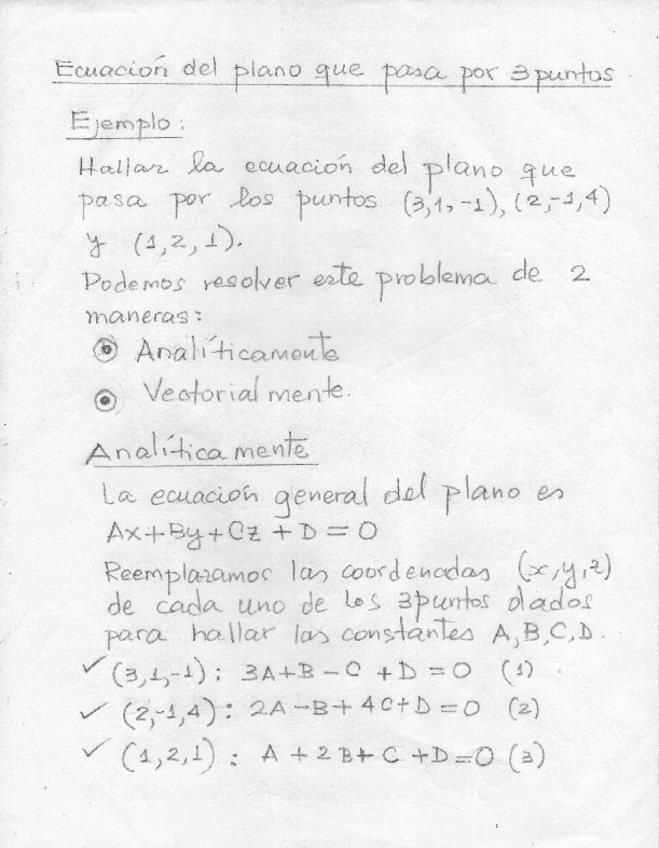 Ecuación del plano que pasa por 3 puntos
Ejemplo:
Hallar la ecuación del plano que
pasa por los puntos (3,1,-1), (2,-1,4)
y (1,2,1).
Podemos resolver este problema de 2
maneras:
Analíticamente
Vectorialmente.
Analíticamente
La ecuación general del plano es
Ax+By+Cz+D=0
Reemplazamos las coordenadas (x,y,z)
de cada uno de los 3 puntos dados
para hallar las constantes A,B,C,D.
✓ (3,1,-1): 3A+B-C+D=0 (1)
✓ (2,-1,4): 2A-B+4C+D=0 (2)
✓ (1,2,1): A+2B+C+D=0 (3)